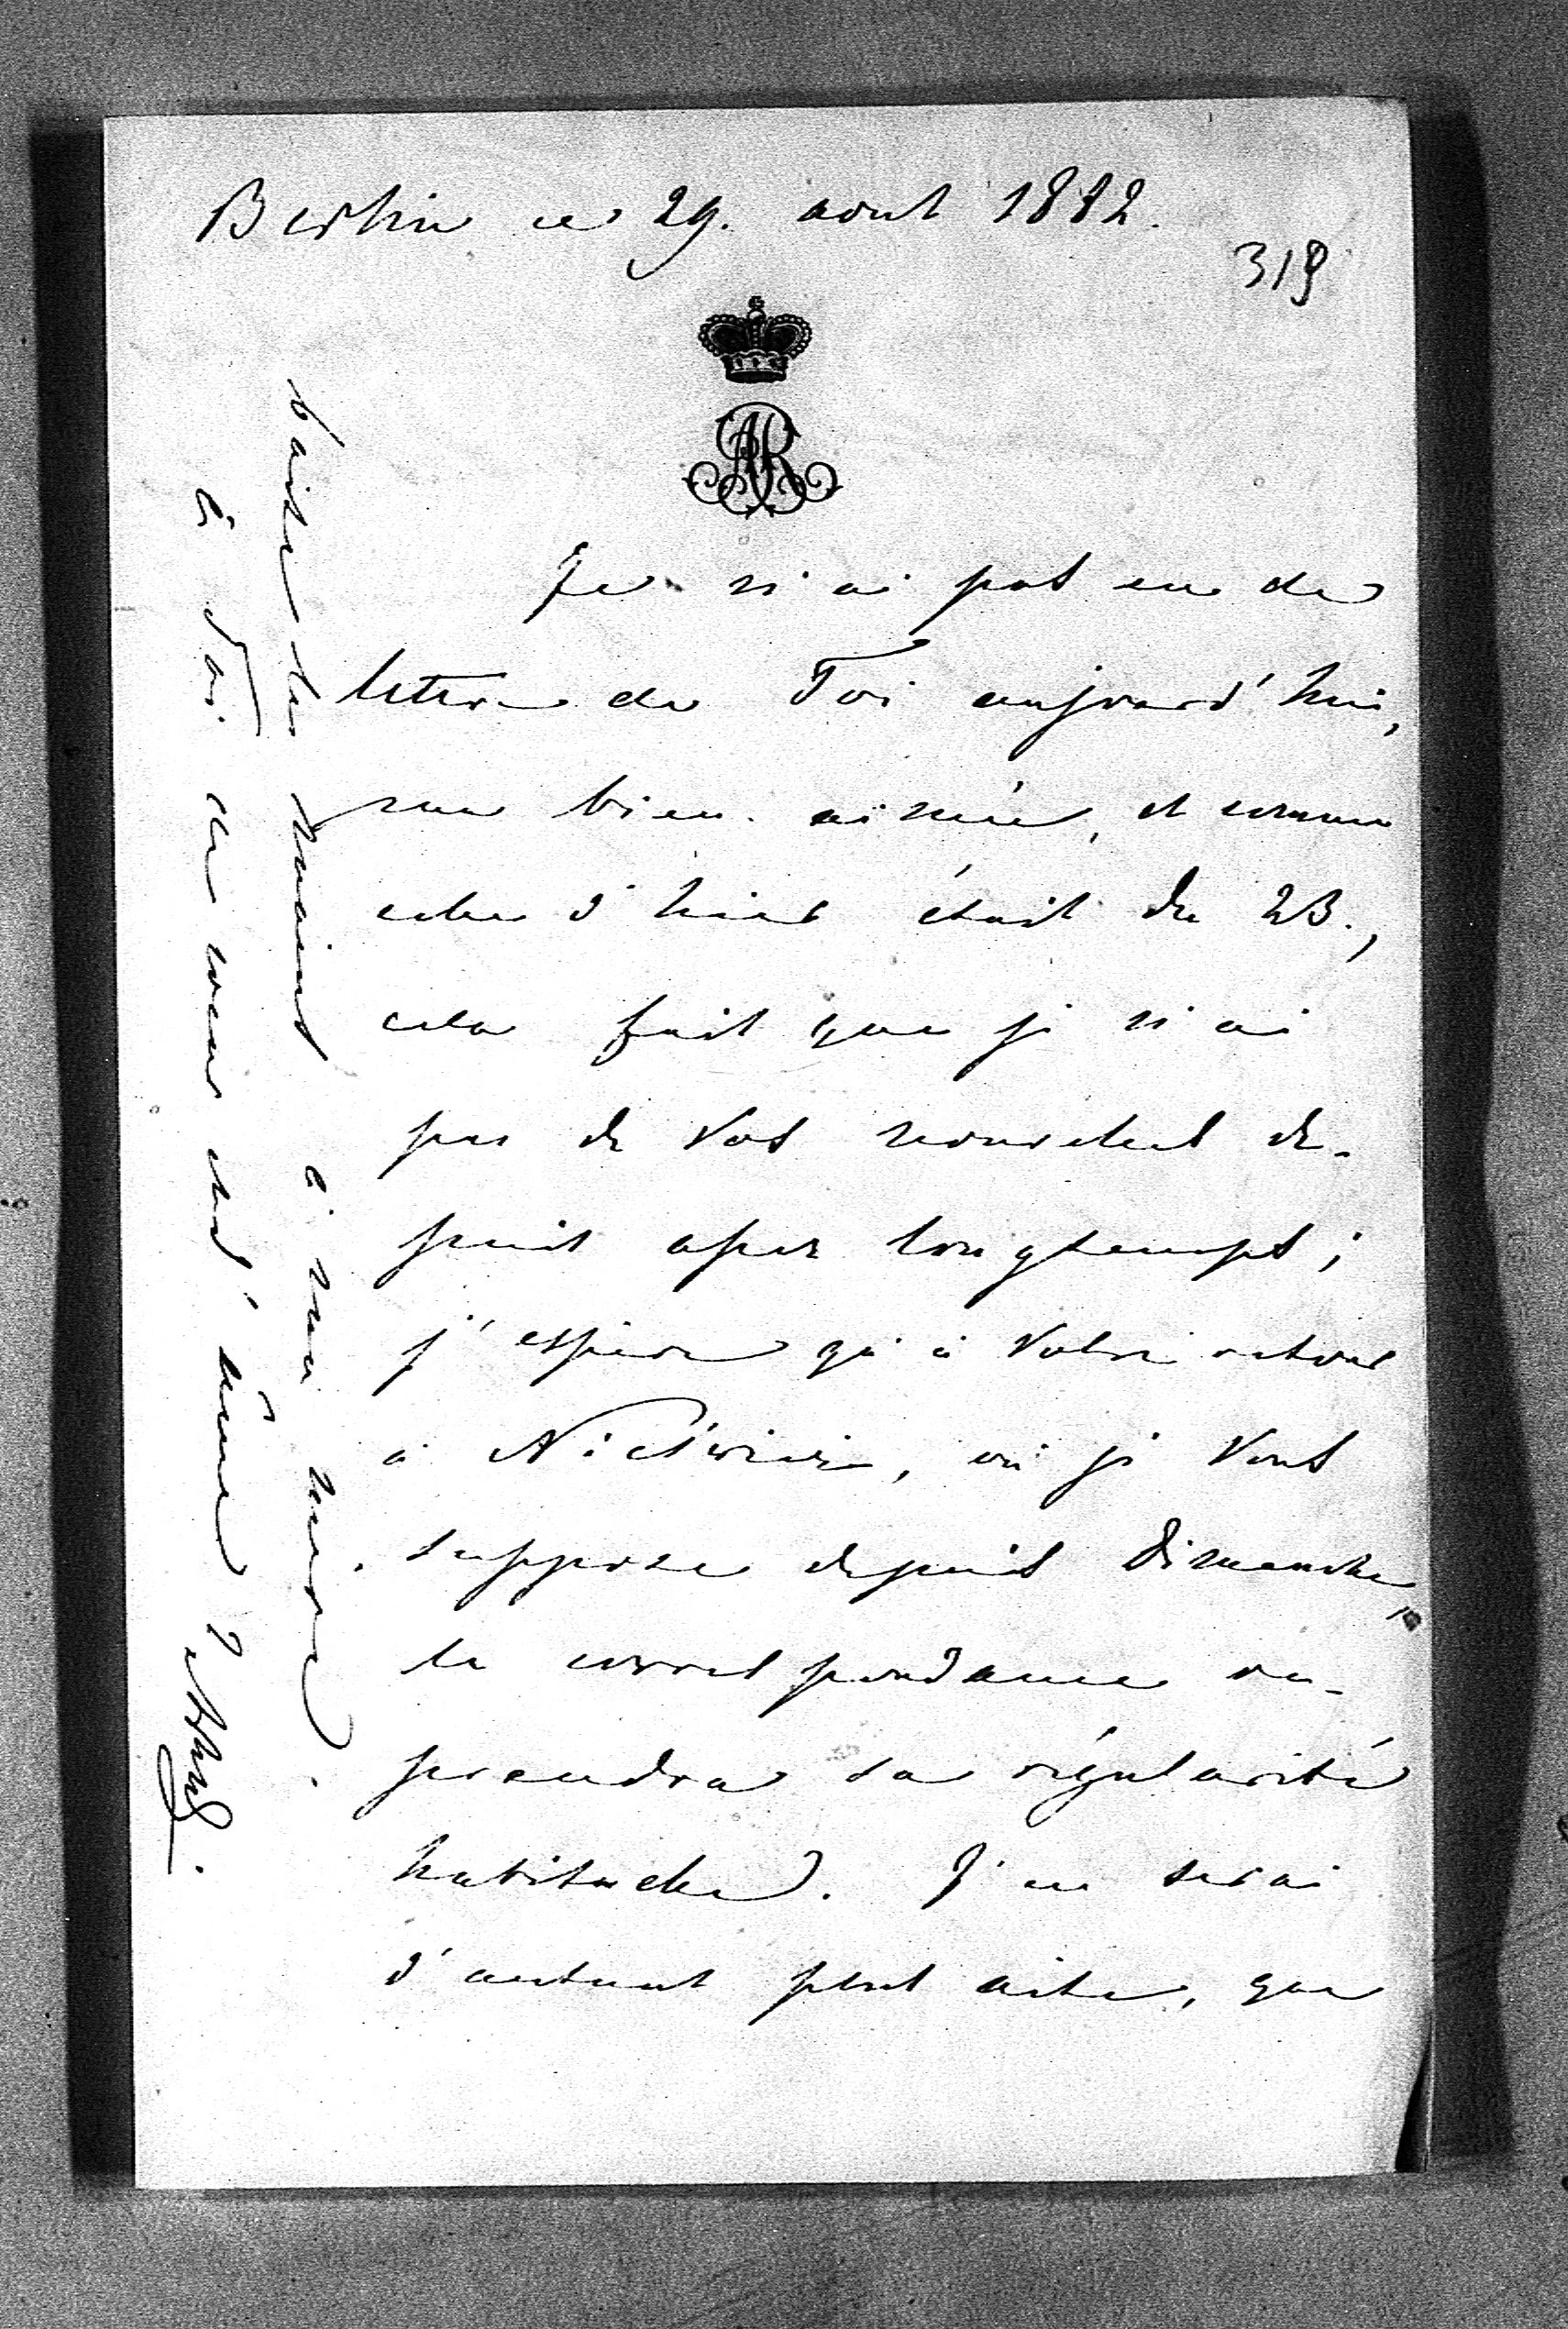 Berlin ce 29. aout 1882.
319
AR
Je n'ai pas eu de
lettre de Toi aujourd'hui,
ma bien-aimée, et comme
celle d'hier était du 23.,
cela fait que je n'ai
pas de Vos nouvelles de-
puis assez longtemps;
j'espère qu'à Votre retour
à Nieświeź, où je Vous
suppose depuis Dimanche,
la correspondance re-
prendra sa régularité
habituelle. J'en serai
d'autant plus aise, que
baise les mains à ma mère.
à Toi de cœur et d'âme